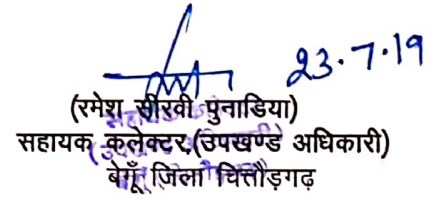 23.7.19
(रमेश सीरवी पुनाडिया)
सहायक कलेक्टर,(उपखण्ड अधिकारी)
बेगूँ जिला चित्तौड़गढ़